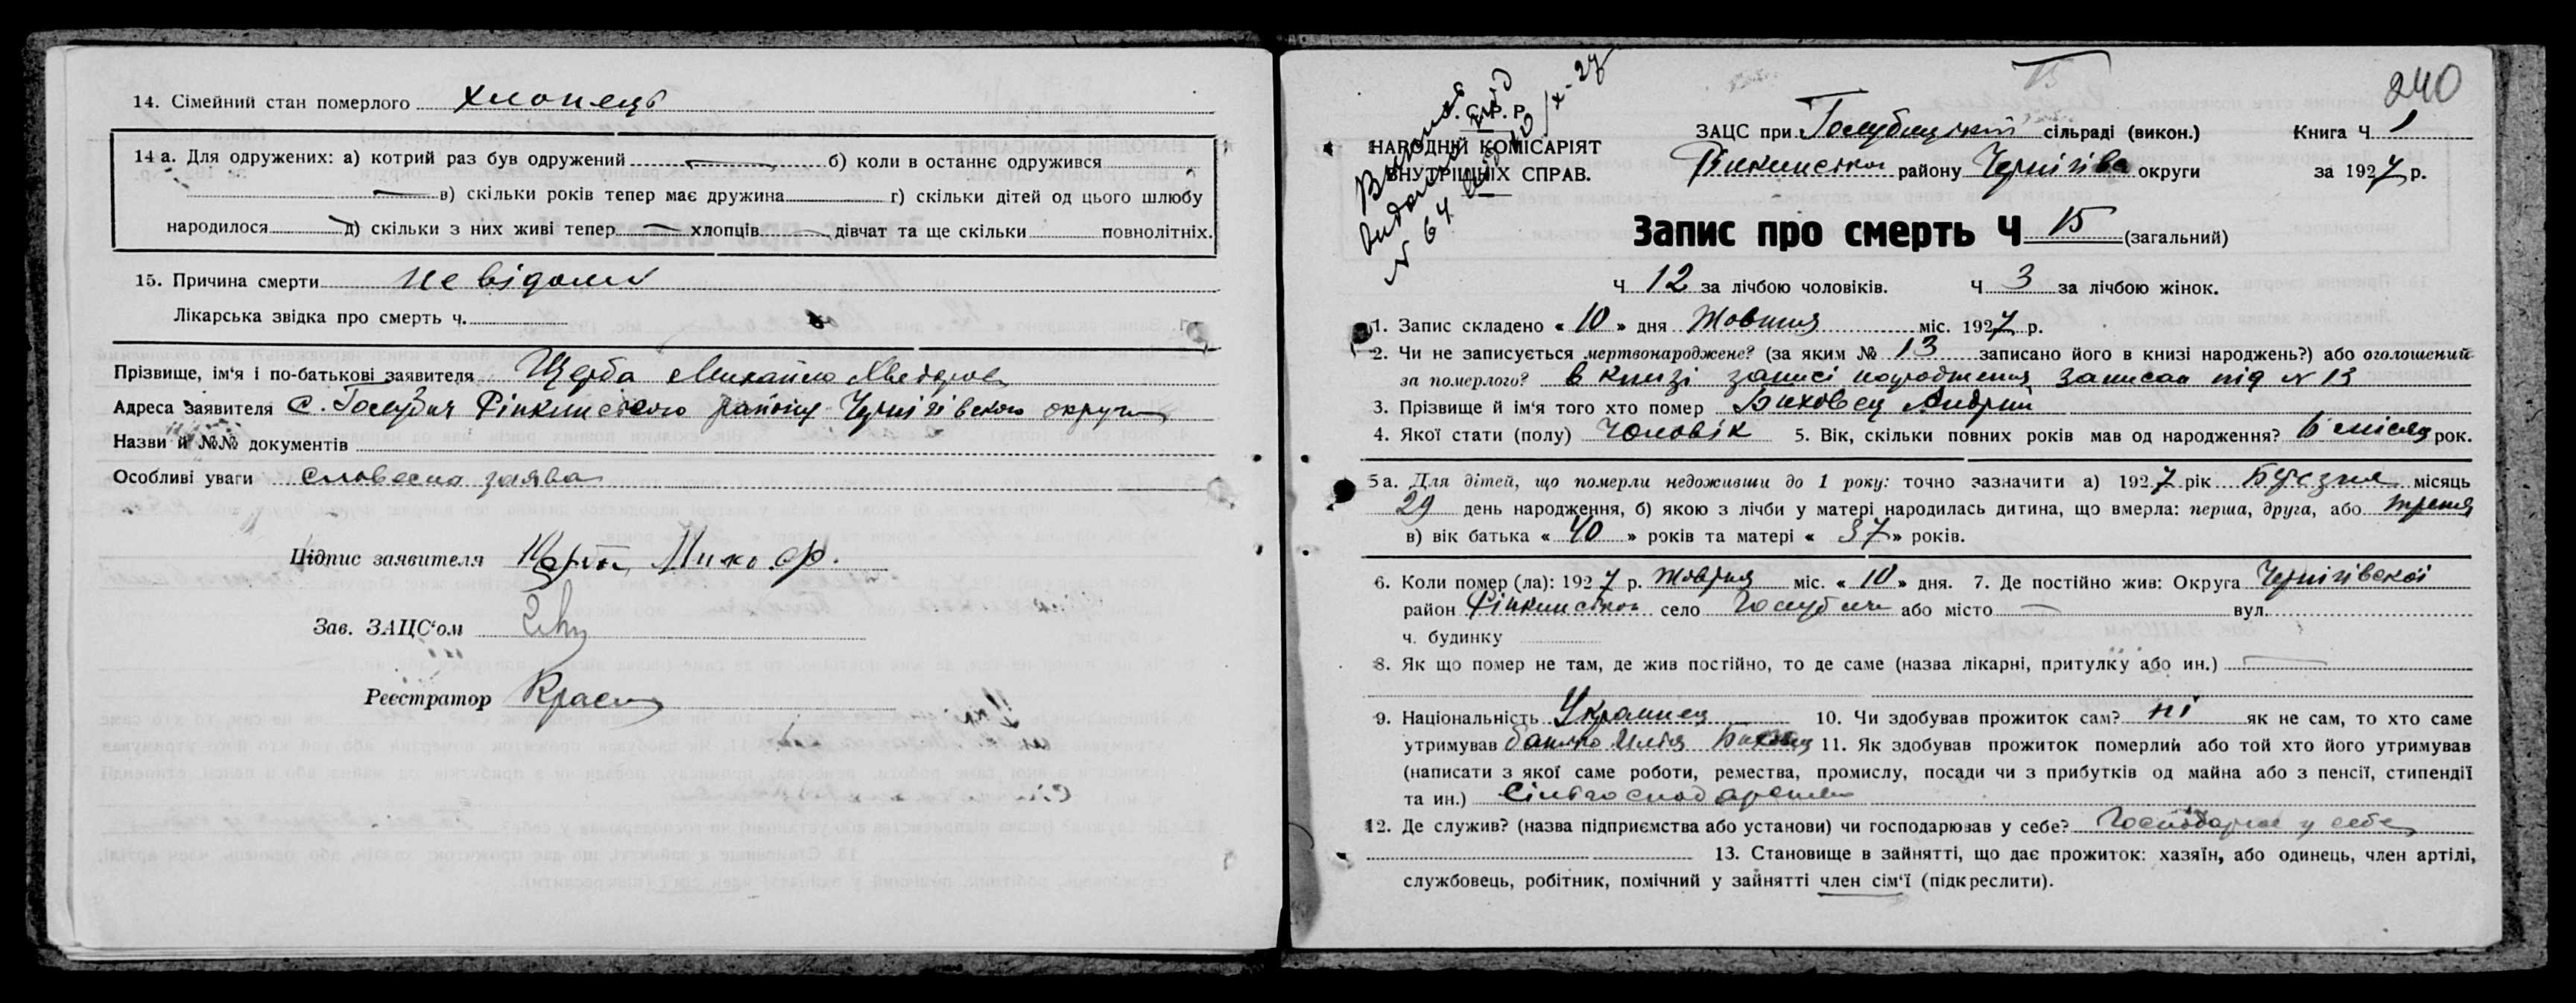 14. Сімейний стан померлого хлопець
14 а. Для одружених: а) котрий раз був одружений — б) коли в останнє одружився
— в) скільки років тепер має дружина г) скільки дітей од цього шлюбу
народилося д) скільки з них живі тепер — хлопців дівчат та ще скільки повнолітніх.
15. Причина смерти невідома
Лікарська звідка про смерть ч.
Прізвище, ім'я і по-батькові заявителя Щерба Михайло
Адреса заявителя с. Голубичі Ріпкинського району Чернігівського округи
Назви й №№ документів
Особливі уваги словесна заява
Підпис заявителя
Зав. ЗАЦС'ом
Реєстратор
240
С. Р. Р.
НАРОДНІЙ КОМІСАРІЯТ
ВНУТРІШНІХ СПРАВ.
№ 64
ЗАЦС при Голубицькій сільраді (викон.) Книга Ч 1
Ріпкинського району Чернігівсь округи за 1927 р.
Запис про смерть Ч 15 (загальний)
Ч 12 за лічбою чоловіків. Ч 3 за лічбою жінок.
1. Запис складено « 10 » дня Жовтня міс. 1927 р.
2. Чи не записується мертвонароджене? (за яким № 13 записано його в книзі народжень?) або оголошений
за померлого? в книзі записі народження записан під № 13
3. Прізвище й ім'я того хто помер Биховец Андрий
4. Якої стати (полу) Чоловік 5. Вік, скільки повних років мав од народження? 6 місяц рок.
5 а. Для дітей, що померли недоживши до 1 року: точно зазначити а) 1927 рік Березня місяць
29 день народження, б) якою з лічби у матері народилась дитина, що вмерла: перша, друга, або третя
в) вік батька « 40 » років та матері « 37 » років.
6. Коли помер (ла): 1927 р. Жовтня міс. « 10 » дня. 7. Де постійно жив: Округа Чернігівської
район Ріпкинськ село Голубичі або місто — вул.
ч. будинку
8. Як що помер не там, де жив постійно, то де саме (назва лікарні, притулку або ин.) —
9. Національність Украинец 10. Чи здобував прожиток сам? ні як не сам, то хто саме
утримував батько Илія 11. Як здобував прожиток померлий або той хто його утримував
(написати з якої саме роботи, ремества, промислу, посади чи з прибутків од майна або з пенсії, стипендії
та ин.) сільгосподарства
12. Де служив? (назва підприємства або установи) чи господарював у себе? Господарює у себе
13. Становище в зайнятті, що дає прожиток: хазяїн, або одинець, член артілі,
службовець, робітник, помічний у зайнятті член сім'ї (підкреслити).